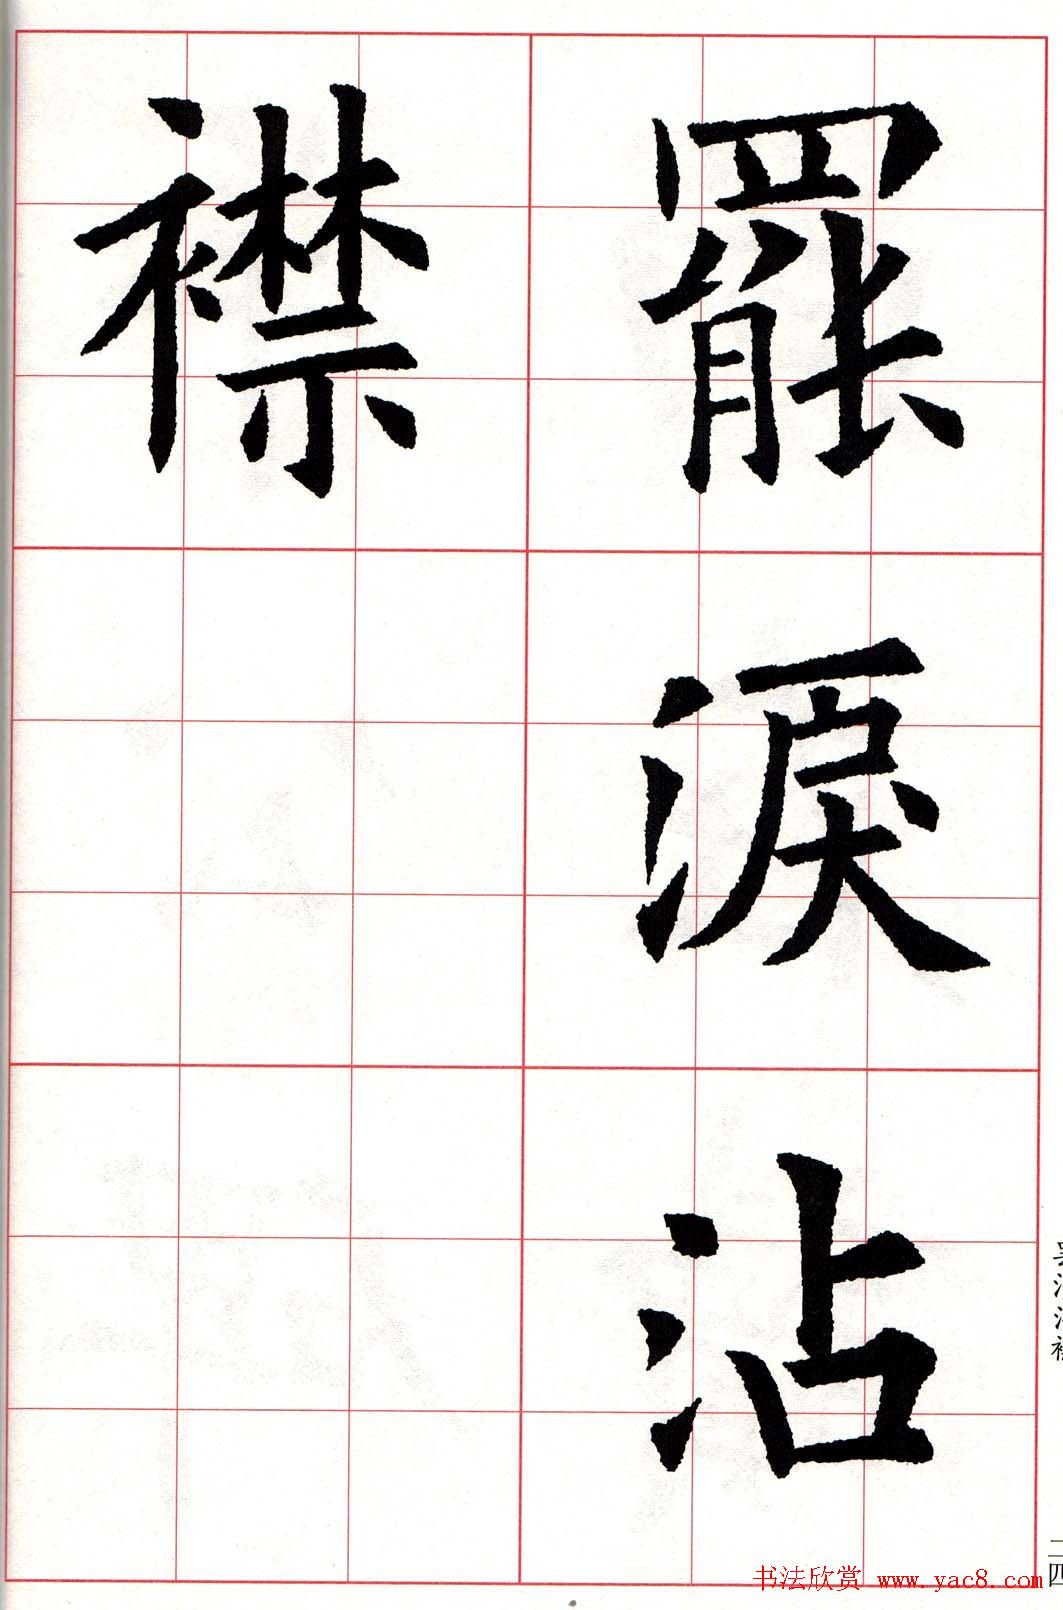 罷淚沾
襟
書法欣赏 www.yac8.com